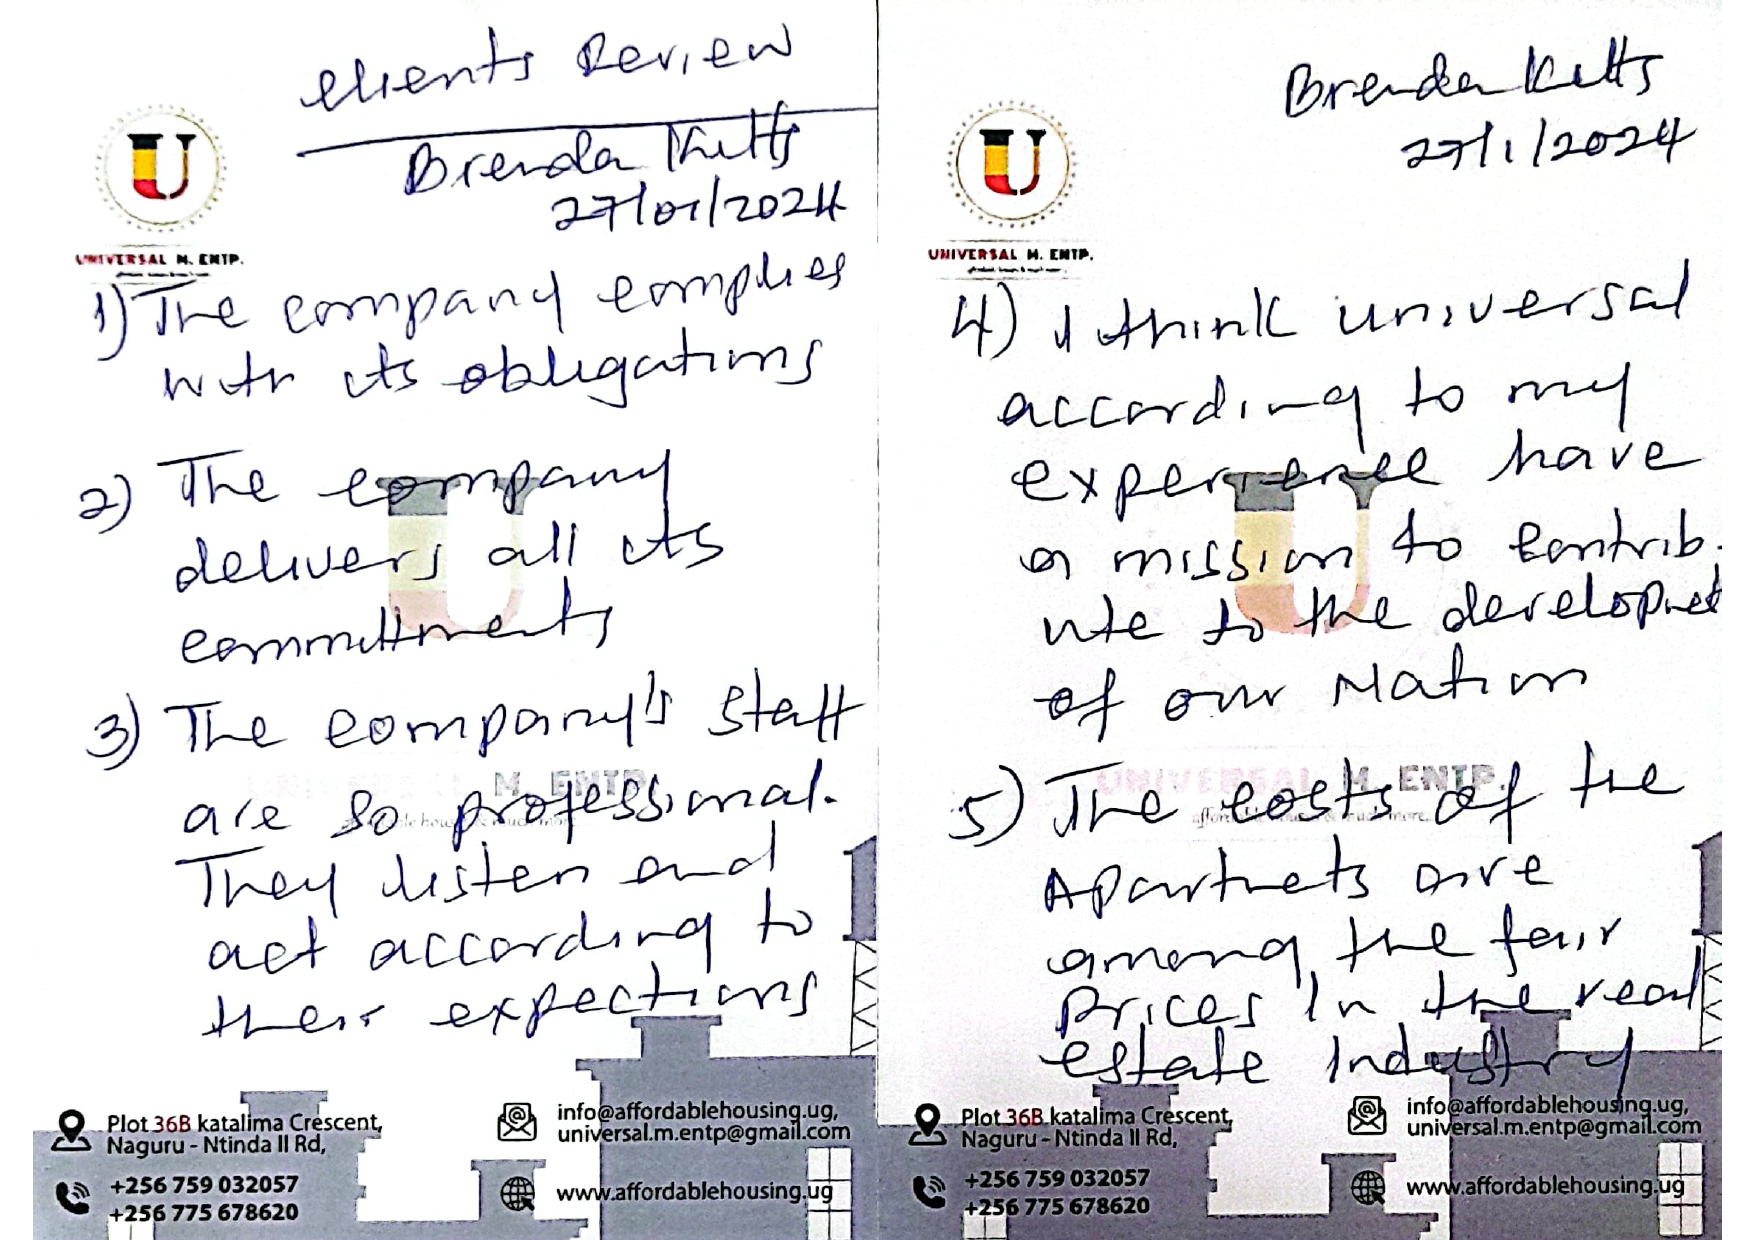 Clients Review
Brenda Kitts
27/01/2024
UNIVERSAL M. ENTP.
1) The company complies
with its obligations
2) The company
delivers all its
committments
3) The company's staff
are so professional.
They listen and
act according to
their expections
UNIVERSAL M. ENTP.
affordable houses & much more.
Plot 36B katalima Crescent,
Naguru - Ntinda II Rd,
+256 759 032057
+256 775 678620
info@affordablehousing.ug,
universal.m.entp@gmail.com
www.affordablehousing.ug
Brenda Kitts
27/1/2024
UNIVERSAL M. ENTP.
4) I think universal
according to my
experience have
a mission to contrib.
ute to the developmet
of our Nation
UNIVERSAL M. ENTP.
affordable houses & much more.
5) The costs of the
Apartmets are
among the fair
prices in the real
estate Industry
Plot 36B katalima Crescent,
Naguru - Ntinda II Rd,
+256 759 032057
+256 775 678620
info@affordablehousing.ug,
universal.m.entp@gmail.com
www.affordablehousing.ug